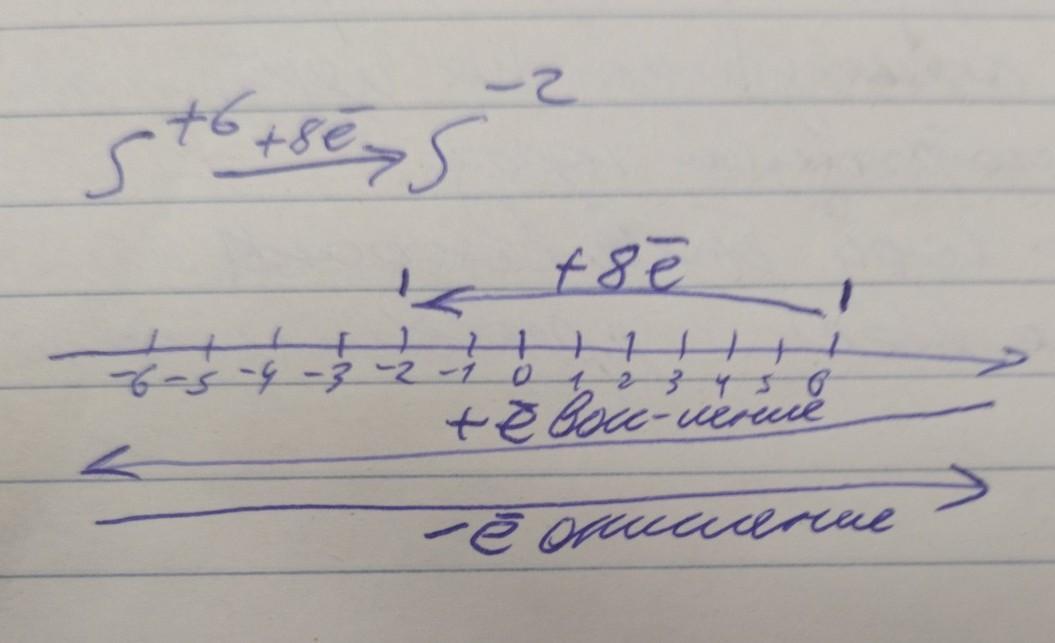 S⁺⁶ +8ē → S⁻²
+8ē
-6 -5 -4 -3 -2 -1 0 1 2 3 4 5 6
+ē вос-ление
-ē окисление